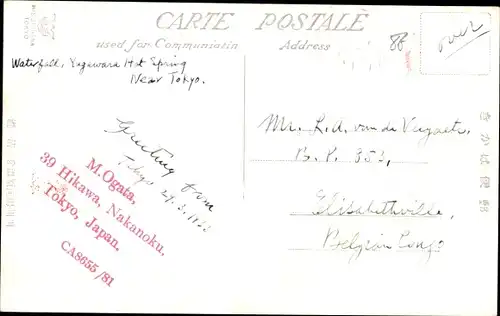 CARTE POSTALE
used for Communiatin
Address
86
over
Waterfall, Yugawara Hot Spring
Near Tokyo.
Greeting from
Tokyo
M.Ogata,
39 Hikawa, Nakanoku,
Tokyo, Japan.
CA8655/81
Mr. L.A. van de
B.P. 353,
Elisabethville,
Belgian Congo
きかは便郵